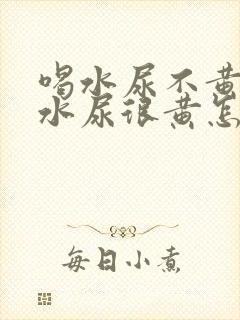 喝水尿不黄
水尿很黄怎
每日小煮